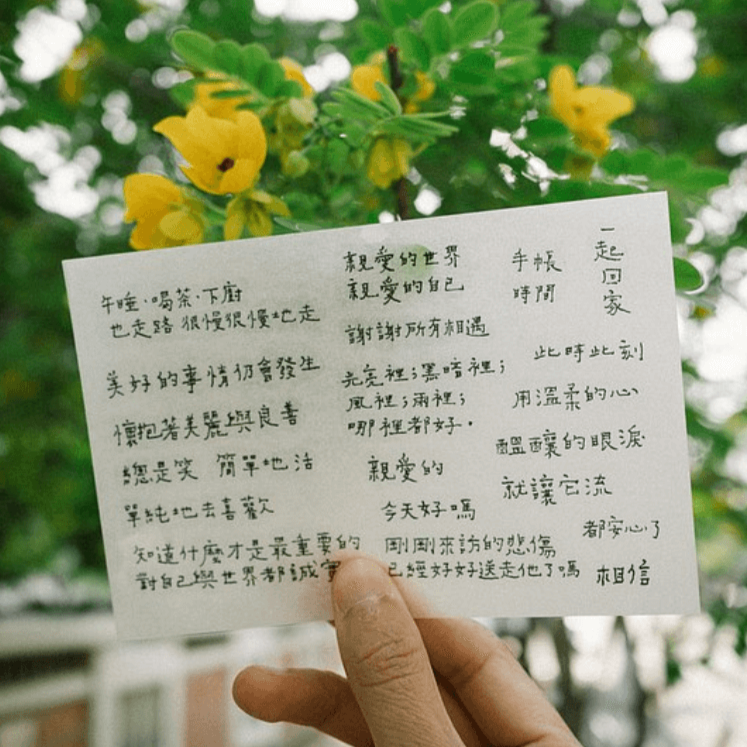 午睡·喝茶·下廚
也走路 很慢很慢地走
美好的事情仍會發生
懷抱著美麗與良善
總是笑 簡單地活
單純地去喜歡
知道什麼才是最重要的
對自己與世界都誠實
親愛的世界
親愛的自己
謝謝所有相遇
光亮裡;黑暗裡;
風裡;雨裡;
哪裡都好。
親愛的
今天好嗎
剛剛來訪的悲傷
已經好好送走他了嗎
手帳
時間
一起回家
此時此刻
用溫柔的心
醞釀的眼淚
就讓它流
都安心了
相信